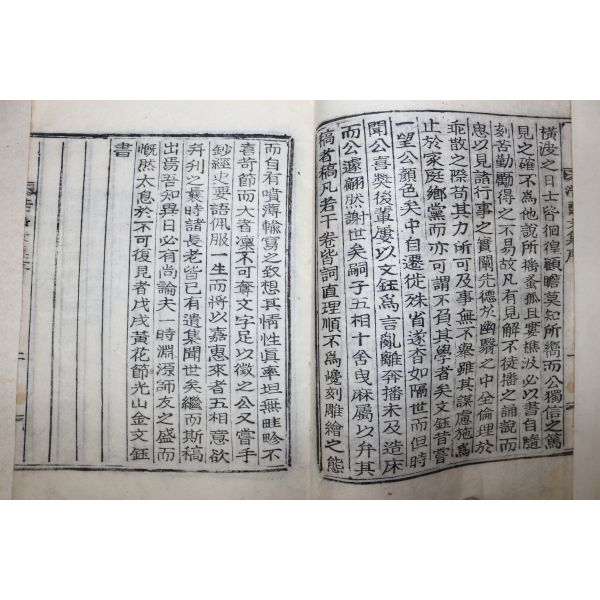 橫潰之日士皆徊徨顧瞻莫知所嚮而公獨信之篤
見之確不爲他說所撓蚤孤且寠樵汲必以書自隨
刻苦勤勵得之不易故凡有見解不徒播之誦說而
思以見諸行事之實闡先德於幽翳之中全倫理於
乖散之際苟其力所可及事無不擧雖其謀慮施爲
止於家庭鄕黨而亦可謂不負其學者矣文鈺昔嘗
一望公顔色矣中自遷徙殊省遂杳如隔世而但時
聞公喜奬後輩屢以文鈺爲言亂離奔播未及造床
而公遽翩然謝世矣嗣子五相十舍曳麻屬以弁其
稿者稿凡若干卷皆詞直理順不爲巉刻雕繪之態
而自有噴薄輸寫之致想其情性眞率坦無畦畛不
喜苛節而大者凜不可奪文字足以徵之公又嘗手
鈔經史要語佩服一生而將以嘉惠來者五相意欲
幷刋以曩時諸長老皆已有遺集聞世矣繼而斯稿
出焉吾知異日必有尚論夫一時淵源師友之盛而
慨然太息於不可復見者戊戌黃花節光山金文鈺
書